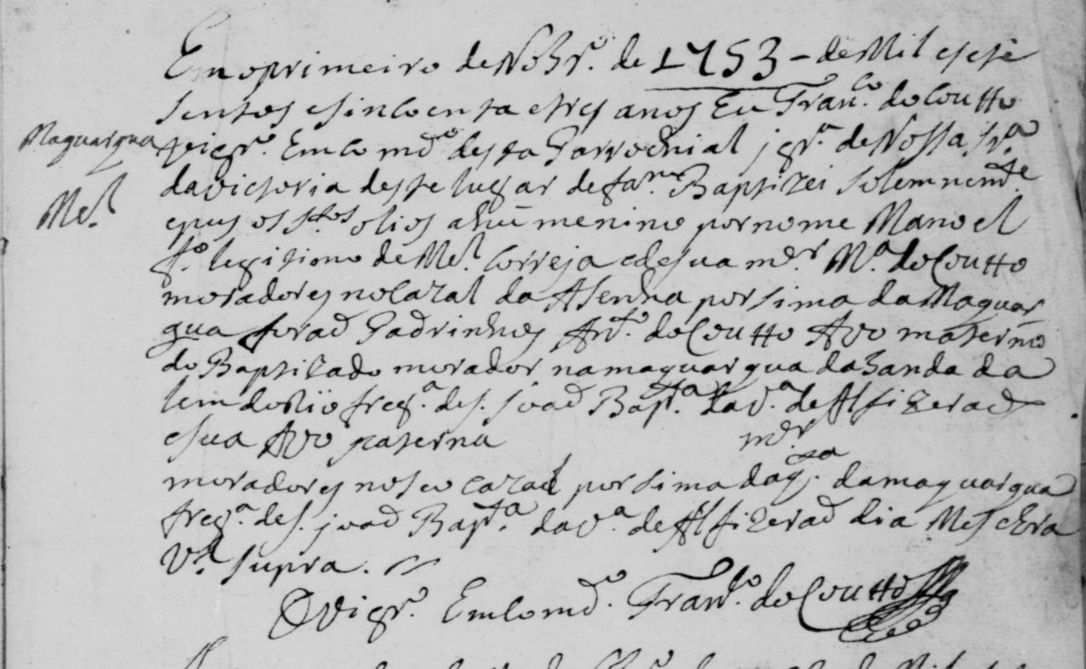 Em o primeiro de Nobr.º de 1753 – de Mil e sete
sentos e sincoenta e tres anos Eu Fran.co do Coutto
Maquarqua
vigr.º Emcomd.º desta Parrochial jgr.ª de Nossa Sr.ª
da victoria deste lugar de fam.am Baptizei solemnem.te
M.el
e pus os S.tos olios a hũ menino por nome Manoel
f.º legitimo de M.el Correja e de sua m.er M.ª do Coutto
moradores no cazal da Asenha por sima da Maquar
qua foraõ Padrinhos An.to do Coutto Avo materno
do Baptizado morador na maquarqua da banda da
lem do Rio freg.ª de S. joaõ Bap.ta da v.ª de Alfizeraõ
e sua Avo paterna
m.er
moradores no seo cazal por sima da q.ta da maquarqua
freg.ª de S. joaõ Bap.ta da v.ª de Alfizeraõ dia Mes e hera
Vt supra.
O vigr.º Emcomd.º Fran.co do Coutto